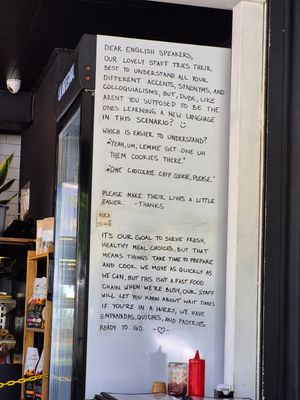 DEAR ENGLISH SPEAKERS,
OUR LOVELY STAFF TRIES THEIR
BEST TO UNDERSTAND ALL YOUR
DIFFERENT ACCENTS, SYNONYMS, AND
COLLOQUIALISMS, BUT, DUDE, LIKE
ARENT YOU SUPPOSED TO BE THE
ONES LEARNING A NEW LANGUAGE
IN THIS SCENARIO?
WHICH IS EASIER TO UNDERSTAND?
"YEAH, UM, LEMME GET ONE UH
THEM COOKIES THERE."
"ONE CHOCOLATE CHIP COOKIE, PLEASE."
PLEASE MAKE THEIR LIVES A LITTLE
EASIER. -THANKS
IT'S OUR GOAL TO SERVE FRESH,
HEALTHY MEAL CHOICES, BUT THAT
MEANS THINGS TAKE TIME TO PREPARE
AND COOK. WE MOVE AS QUICKLY AS
WE CAN, BUT THIS ISN'T A FAST FOOD
CHAIN. WHEN WE'RE BUSY, OUR STAFF
WILL LET YOU KNOW ABOUT WAIT TIMES
IF YOU'RE IN A HURRY, WE HAVE
EMPANADAS, QUICHES, AND PASTRIES
READY TO GO.